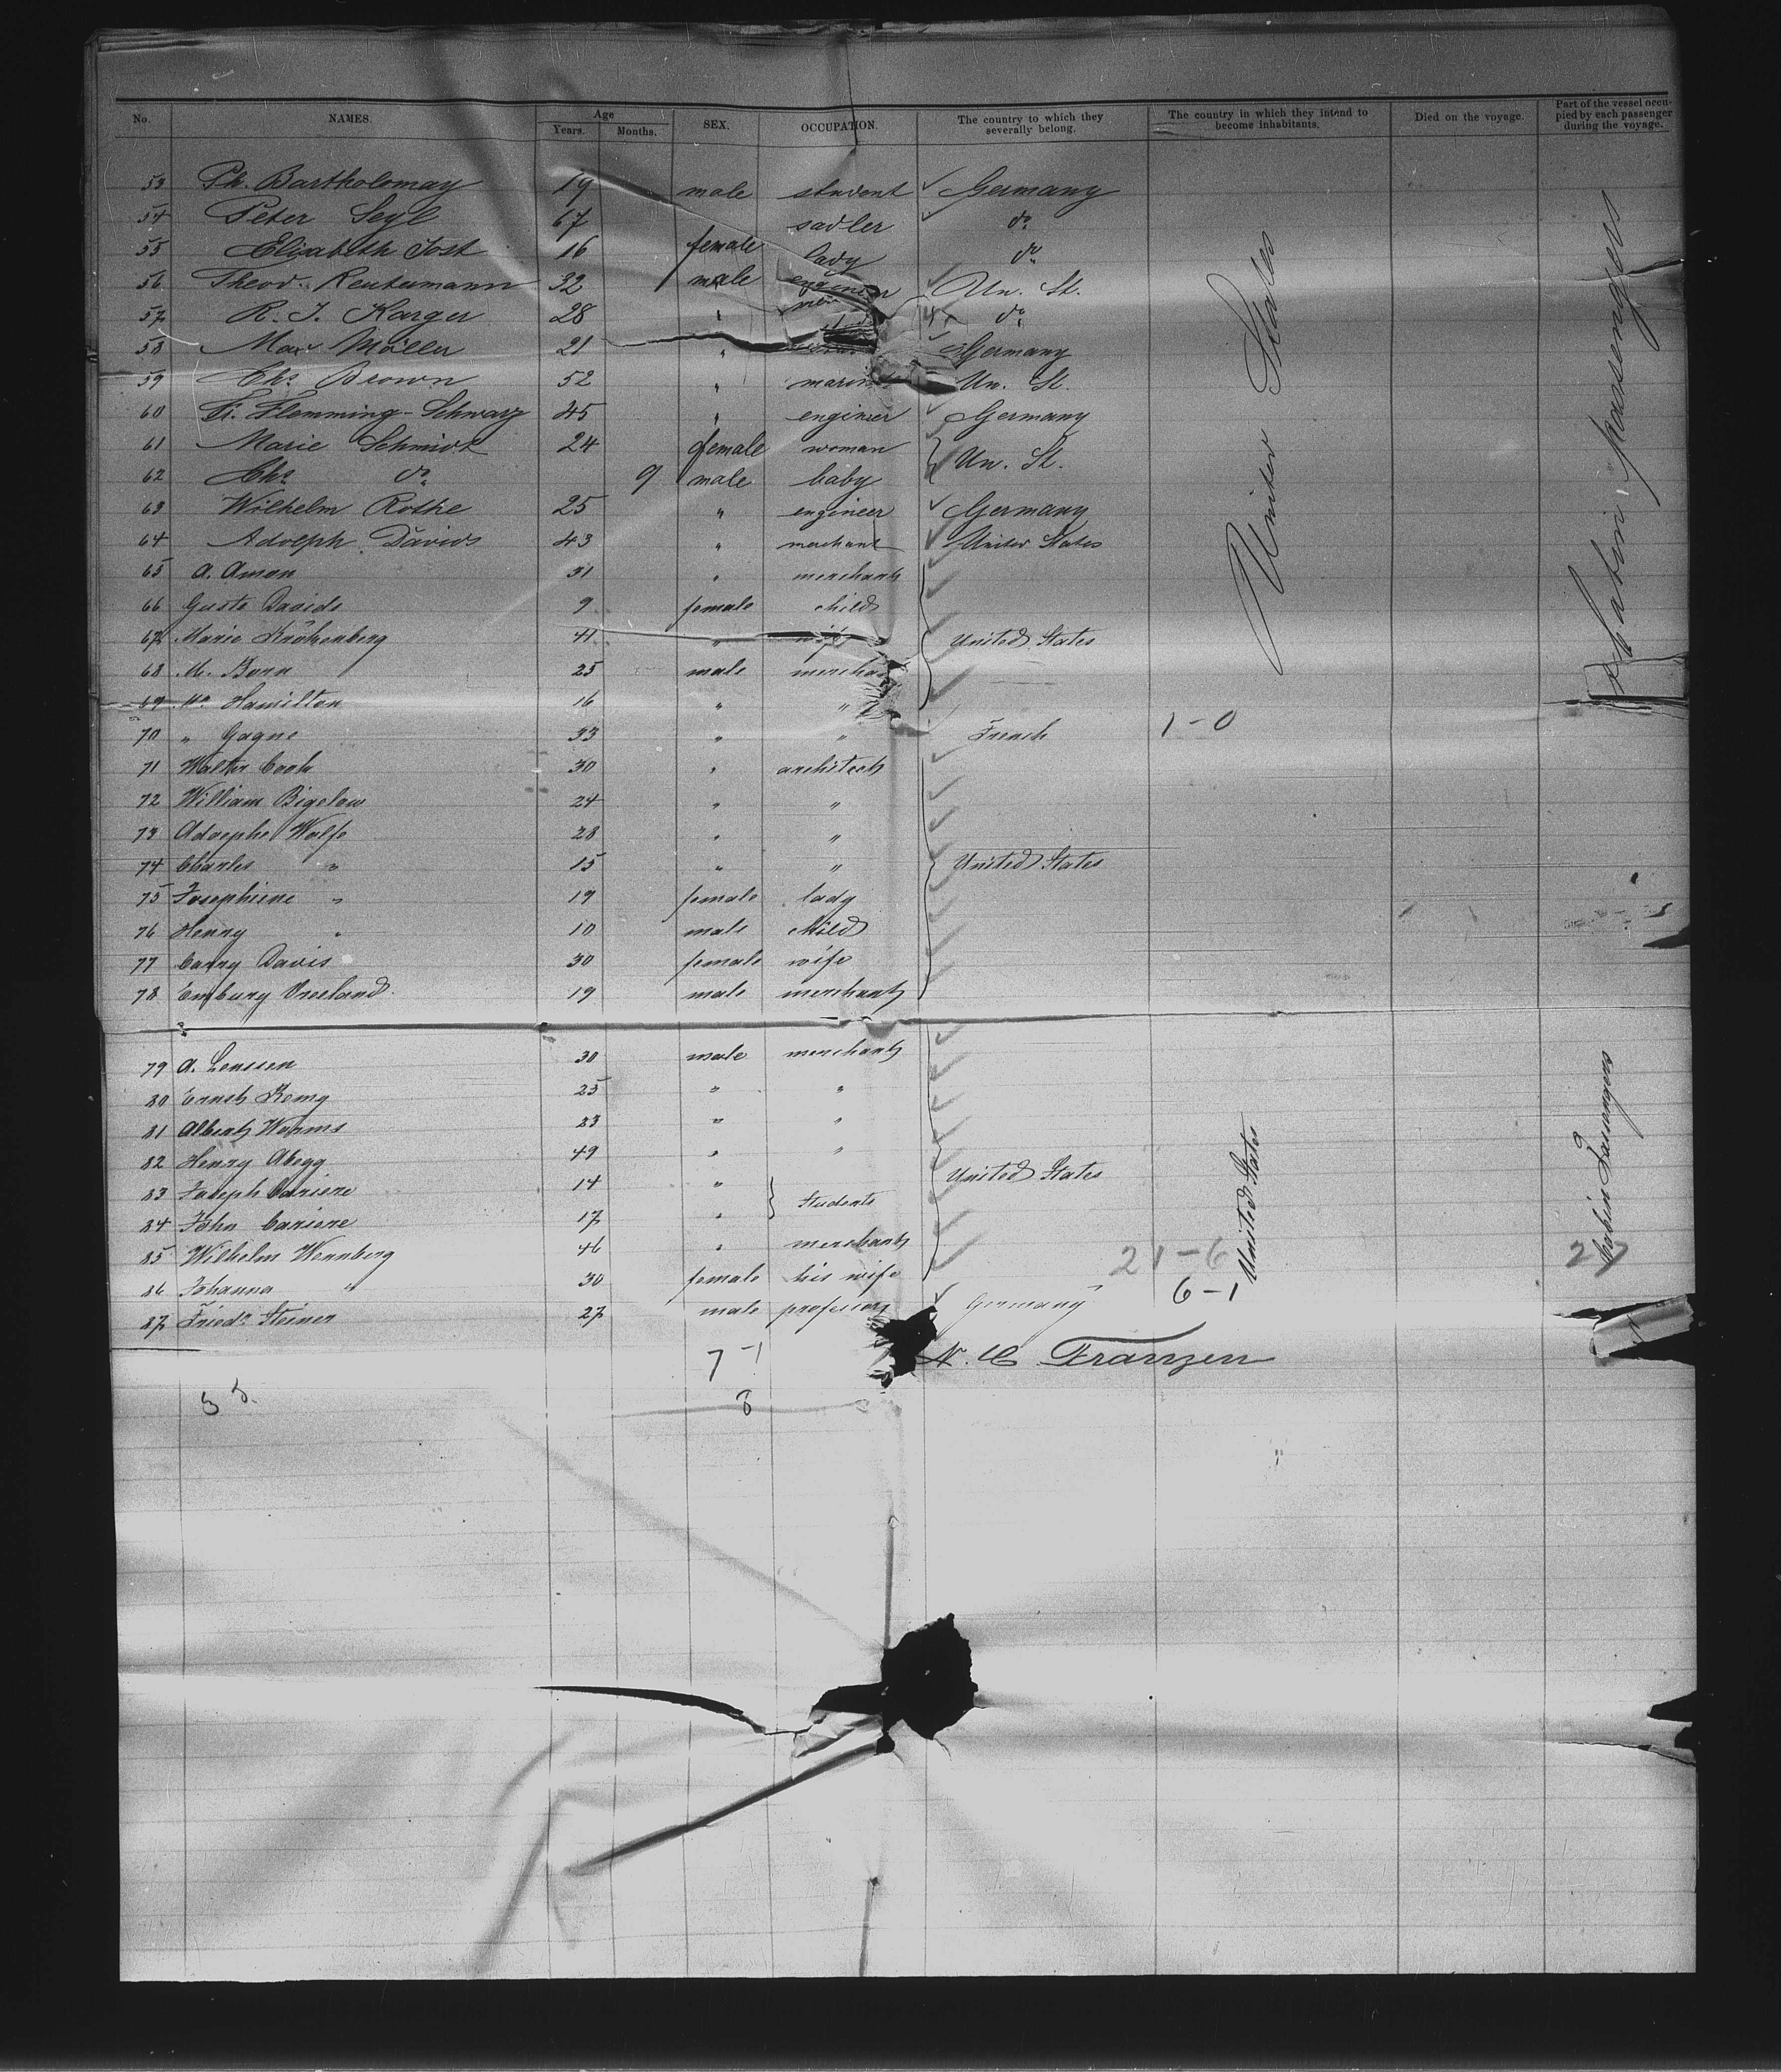 No. NAMES. Age Years. Months. SEX. OCCUPATION. The country to which they severally belong. The country in which they intend to become inhabitants. Died on the voyage. Part of the vessel occupied by each passenger during the voyage.
53 Ph. Bartholomay 19 male student Germany
54 Peter Seyl 67 sadler do
55 Elisabeth Jost 16 female lady do
56 Theod. Reutermann 32 male engineer Un. St.
57 R. J. Karger 28 " do
58 Max Möller 21 " Germany
59 Chs Brown 52 " marin Un. St.
60 Fr. Flemming-Schwarz 45 " engineer Germany
61 Marie Schmidt 24 female woman Un. St.
62 Chs do 9 male baby
63 Wilhelm Rothe 25 " engineer Germany
64 Adolph Davids 43 " merchant United States
65 A. Aman 31 " merchant
66 Guste Davids 9 female child
67 Marie Krökenberg 41 " wife United States
68 M. Born 25 male merchan
69 Mr Hamilton 16 " "
70 " Gagne 33 " " French 1-0
71 Walter Cook 30 " architect
72 William Bigelow 24 " "
73 Adolphe Wolfe 28 " "
74 Charles " 15 " " United States
75 Josephine " 19 female lady
76 Henry " 10 male child
77 Carry Davis 30 female wife
78 Embury Vreeland 19 male merchant
United States
Cabin passengers
79 A. Lenssen 30 male merchant
80 Ernst Remy 25 " "
81 Albert Worms 23 " "
82 Henry Abegg 49 " "
83 Joseph Cariere 14 " Students United States
84 John Cariere 17 "
85 Wilhelm Wennberg 46 " merchant 21-6
86 Johanna " 30 female his wife 6-1
87 Friedr Steiner 27 male professor Germany
United States
Cabin Passengers
27
7-1 Franzen
8